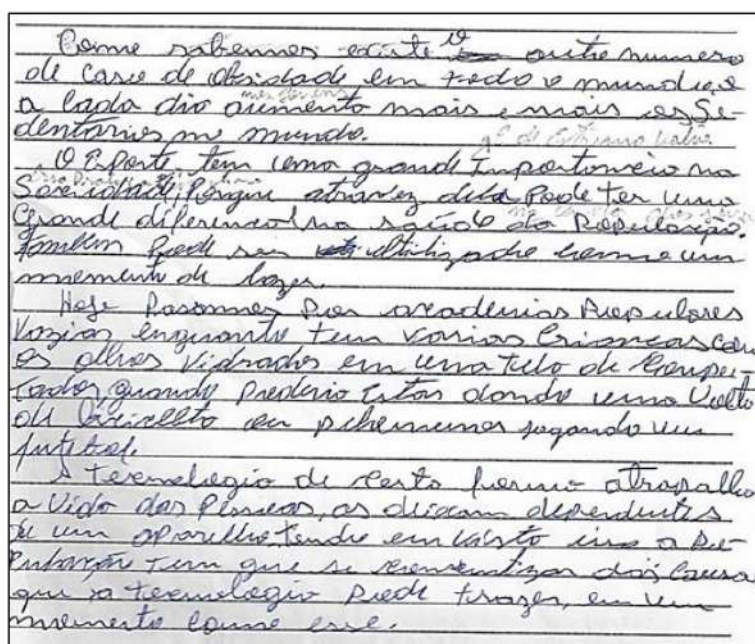 Como sabemos existe o outro numero
de caso de obsidade em todo o mundo, e
a cada dia aumenta mais e mais os Se-
dentários no mundo.
O Esporte, tem uma grande Importancia na
Sociedade, Porque atravez dela Pode ter uma
Grande diferencial na saúde da População.
Também Pode ser utilizado como um
momento de lazer.
Hoje Passamos Por academias Populares
Vazias enquanto tem varias Crianças com
os olhos Vidrados em uma tela de Compu-
tador, quando Poderia estar dando uma Volta
de bicicleta ou jogando um
futebol.
A tecnologia de certa forma atrapalha
a Vida das Pessoas, os deixam dependentes
de um aparelho tendo em vista isso a Po-
pulação tem que se conscientizar das Causas
que a tecnologia Pode trazer, em um
momento como esse.